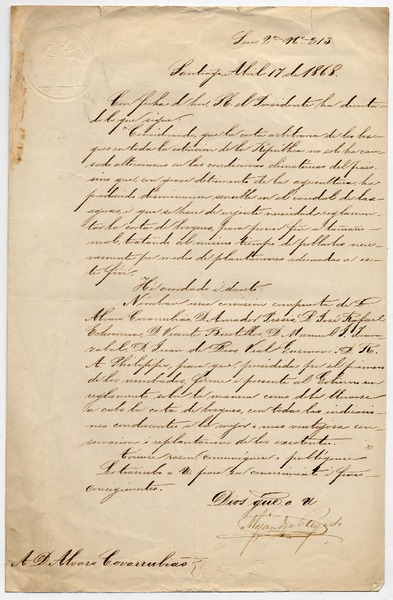 Sec 2ª Nº 213
Santiago, Abril 17 de 1868.
Con fecha de hoi S. E. el Presidente ha decreta-
do lo que sigue:
"Considerando que la corta arbitraria de los bos-
ques en toda la estension de la República no solo ha cau-
sado alteraciones en las condiciones climatéricas del pais
sino que, con grave detrimento de la agricultura, ha
producido disminucion en el caudal de las
aguas, i que se hace de urjente necesidad reglamen-
tar la corta de bosques, para poner fin a tamaño
mal, tratando al mismo tiempo de poblarlos nueva-
mente por medio de plantaciones adecuadas a es-
te fin,
He acordado i decreto:
Nómbrase una comision compuesta de D.
Alvaro Covarrubias, D. Amado Pissis, D. José Rafael
Echeverria, D. Vicente Bustillos, D. Manuel J. Irarra-
zabal, D. Juan de Dios Vial Guzman i D. R.
A. Philippi, para que, presidida por el primero
de los nombrados, forme i presente al Gobierno un
reglamento sobre la manera como debe llevarse
a cabo la corta de bosques, con todas las indicacio-
nes conducentes a la mejor i mas ventajosa con-
servacion i replantacion de los existentes.
Tómese razon, comuníquese i publíquese."
Lo trascribo a U para su conocimiento i fines
consiguientes.
Dios gue a U
A D. Alvaro Covarrubias